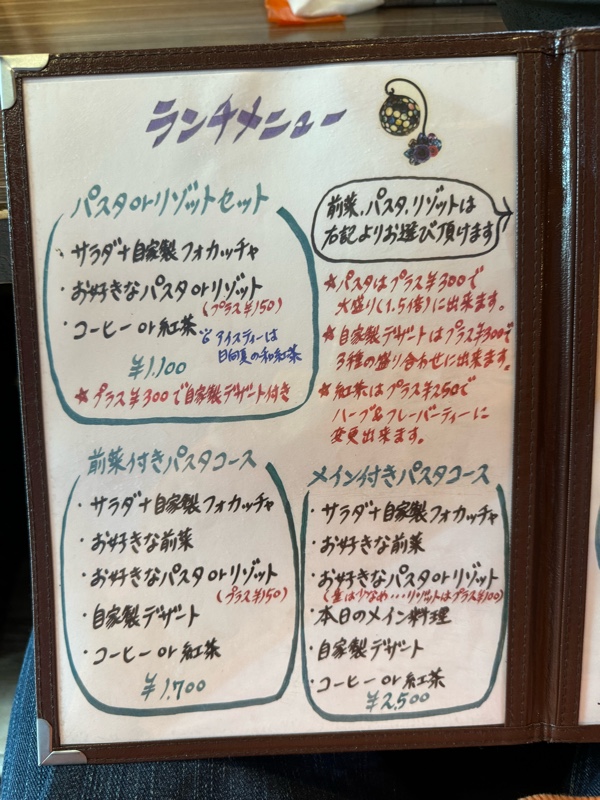 ランチメニュー
パスタorリゾットセット
・サラダ+自家製フォカッチャ
・お好きなパスタorリゾット
(プラス¥150)
・コーヒーor紅茶
アイスティーは
日向夏の和紅茶
¥1,100
☆プラス¥300で自家製デザート付き
前菜、パスタ、リゾットは
右記よりお選び頂けます
☆パスタはプラス¥300で
大盛り(1.5倍)に出来ます。
☆自家製デザートはプラス¥300で
3種の盛り合わせに出来ます。
☆紅茶はプラス¥250で
ハーブ&フレーバーティーに
変更出来ます。
前菜付きパスタコース
・サラダ+自家製フォカッチャ
・お好きな前菜
・お好きなパスタorリゾット
(プラス¥150)
・自家製デザート
・コーヒーor紅茶
¥1,700
メイン付きパスタコース
・サラダ+自家製フォカッチャ
・お好きな前菜
・お好きなパスタorリゾット
(量は少なめ…リゾットはプラス¥100)
・本日のメイン料理
・自家製デザート
・コーヒーor紅茶
¥2,500